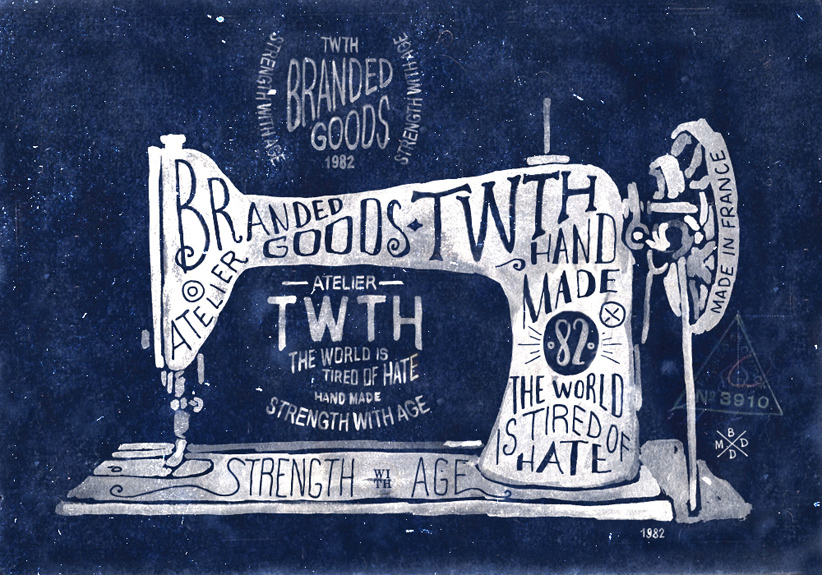 TWTH
BRANDED
GOODS
1982
STRENGTH WITH AGE
STRENGTH WITH AGE
BRANDED
GOODS
TWTH
ATELIER
HAND
MADE
82
THE WORLD
IS TIRED OF
HATE
MADE IN FRANCE
ATELIER
TWTH
THE WORLD IS
TIRED OF HATE
HAND MADE
STRENGTH WITH AGE
STRENGTH WITH AGE
Nº 3910
B
M D
D
1982